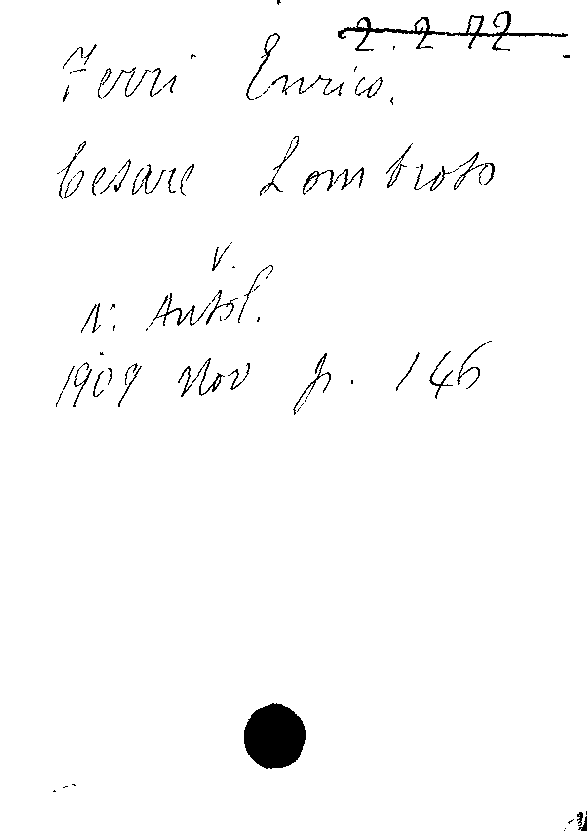 2. 2 72
Ferri Enrico.
Cesare Lombroso
V.
N. Antol.
1909 Nov p. 146